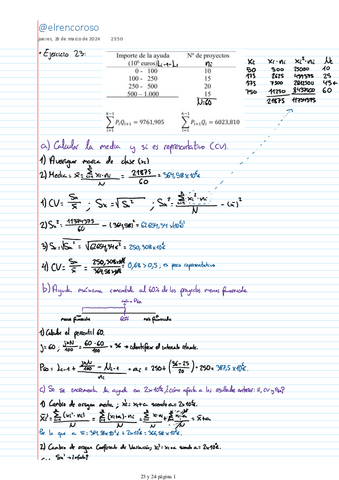 @elrencoroso
jueves, 21 de marzo de 2024 23:50
• Ejercicio 23:
Importe de la ayuda Nº de proyectos
(10⁶ euros) Lᵢ₋₁-Lᵢ nᵢ
0 - 100 10
100 - 250 15
250 - 500 20
500 – 1.000 15
N=60
xᵢ xᵢ·nᵢ xᵢ²·nᵢ Nᵢ
50 500 25000 10
175 2625 459375 25
375 7500 2812500 45
750 11250 8437500 60
21875 11734375
∑ PᵢQᵢ₊₁ = 9761,905 ∑ PᵢQᵢ₊₁ = 6023,810
a) Calcular la media y si es representativo (CV).
1) Averiguar marca de clase (xᵢ)
2) Media = x̄ = ∑ xᵢ·nᵢ / N = 21875 / 60 = 364,58 x10⁶€
1) CV = Sx / x̄ ; Sx = √Sx² ; Sx² = ∑ xᵢ²·nᵢ / N - (x̄)²
2) Sx² = 11734375 / 60 - (364,58)² =
3) Sx = √Sx² = = 250,308 x10⁶€
4) CV = Sx / x̄ = 250,308 x10⁶ / 364,58 x10⁶ = 0,68 > 0,5 ; es poco representativo
b) Ayuda máxima concedida al 60% de los proyectos menos financiados.
60%
menos financiado más financiado
1) Calcular el percentil 60.
j = 60 ; j×N / 100 = 60·60 / 100 = 36 → identificar el intervalo
P₆₀ = Lᵢ₋₁ + · aᵢ = 250 + (36-25 / 20) · 250 = 387,5 x10⁶€
c) Si se incrementa la ayuda en 2x10⁶€ ¿cómo afecta a los resultados anteriores: x̄, CV y P₆₀?
1) Cambio de origen media ; xᵢ' = xᵢ + a siendo a = 2x10⁶€.
Por lo que a x̄ = 364,58 x10⁶€ + 2x10⁶€ = 366,58 x10⁶€
2) Cambio de origen Coeficiente de Variación: xᵢ' = xᵢ + a siendo a = 2x10⁶€.
23 y 24 página 1